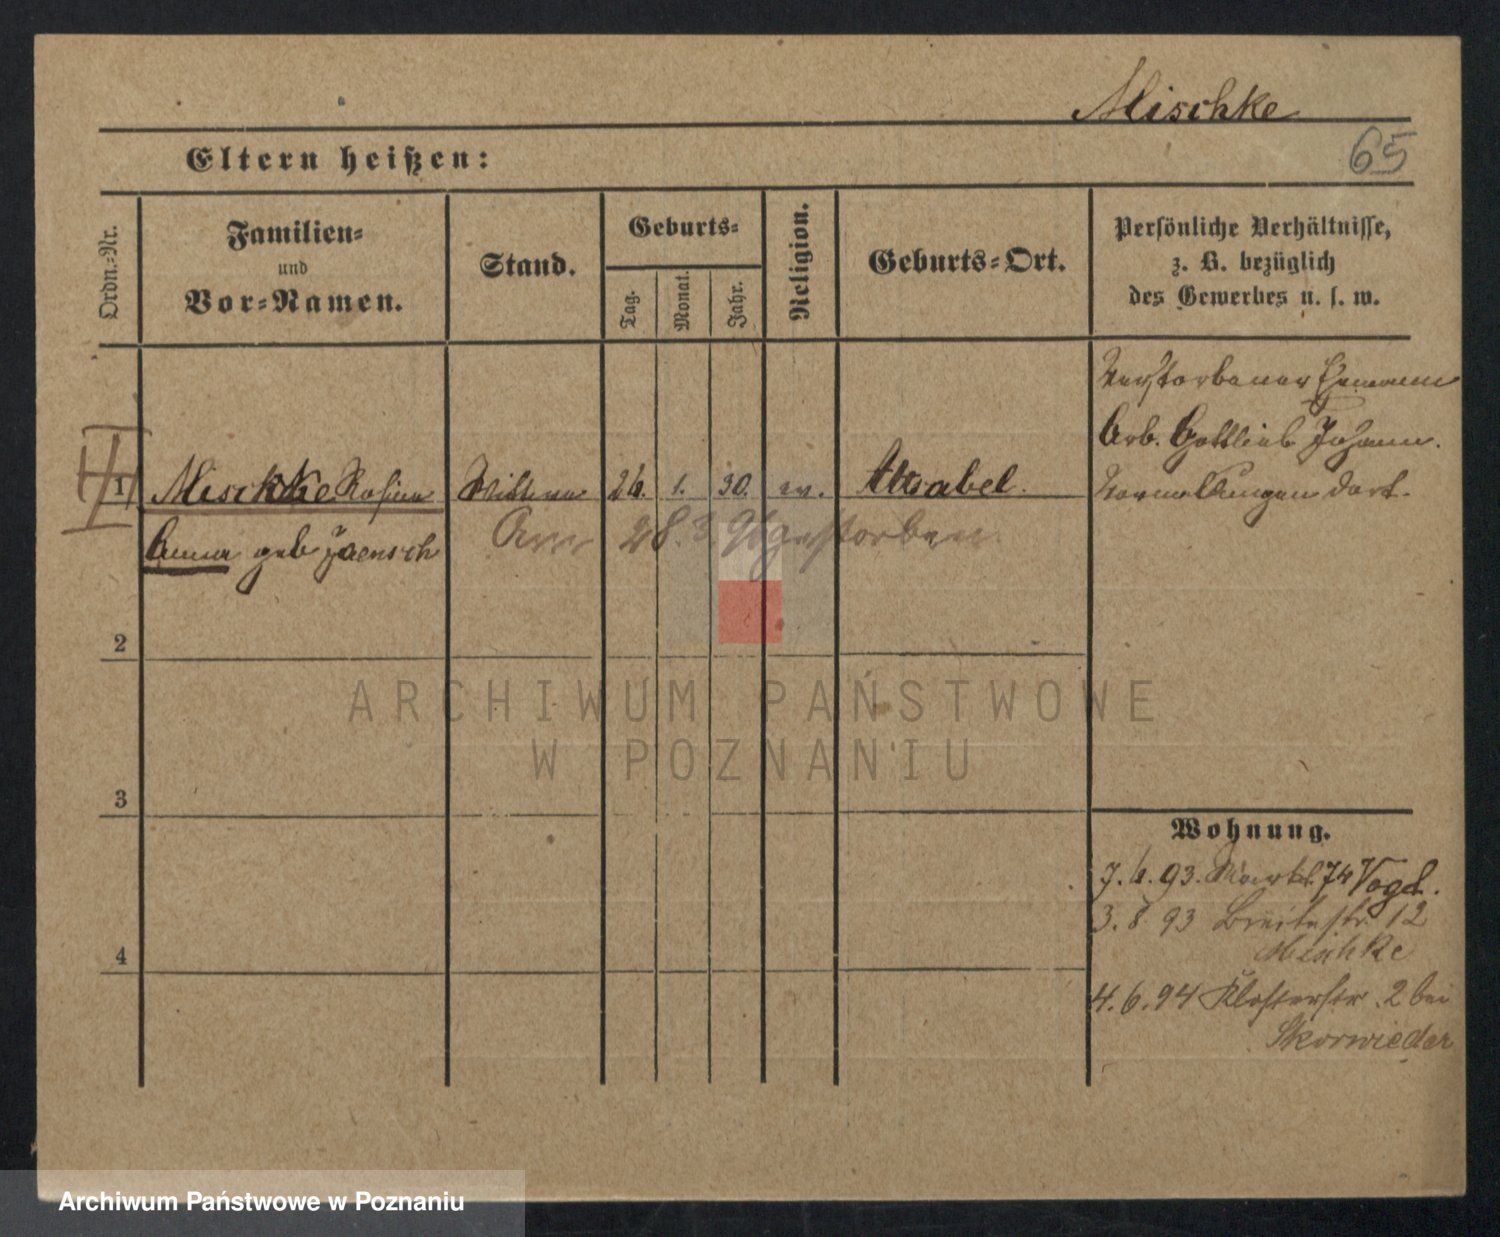 Mischke
65
Eltern heißen:
Ordn.-Nr.
Familien-
und
Vor-Namen.
Stand.
Geburts-
Tag.
Monat.
Jahr.
Religion.
Geburts-Ort.
Persönliche Verhältnisse,
z. B. bezüglich
des Gewerbes u. s. w.
Verstorbener Ehemann
Arb. Gottlieb Johann.
1 Mischke Rosina Wittwe 26. 1. 30. ev. Altrabel.
Vormeldungen dort.
Anna geb Jaensch
Am 28.3.96 gestorben
2
ARCHIWUM PAŃSTWOWE
W POZNANIU
3
Wohnung.
7.6.93. Markt 74 Vogel.
3.8 93 Breitestr. 12
Mischke
4
4.6.94 Klosterstr. 2 bei
Skorwieder
Archiwum Państwowe w Poznaniu